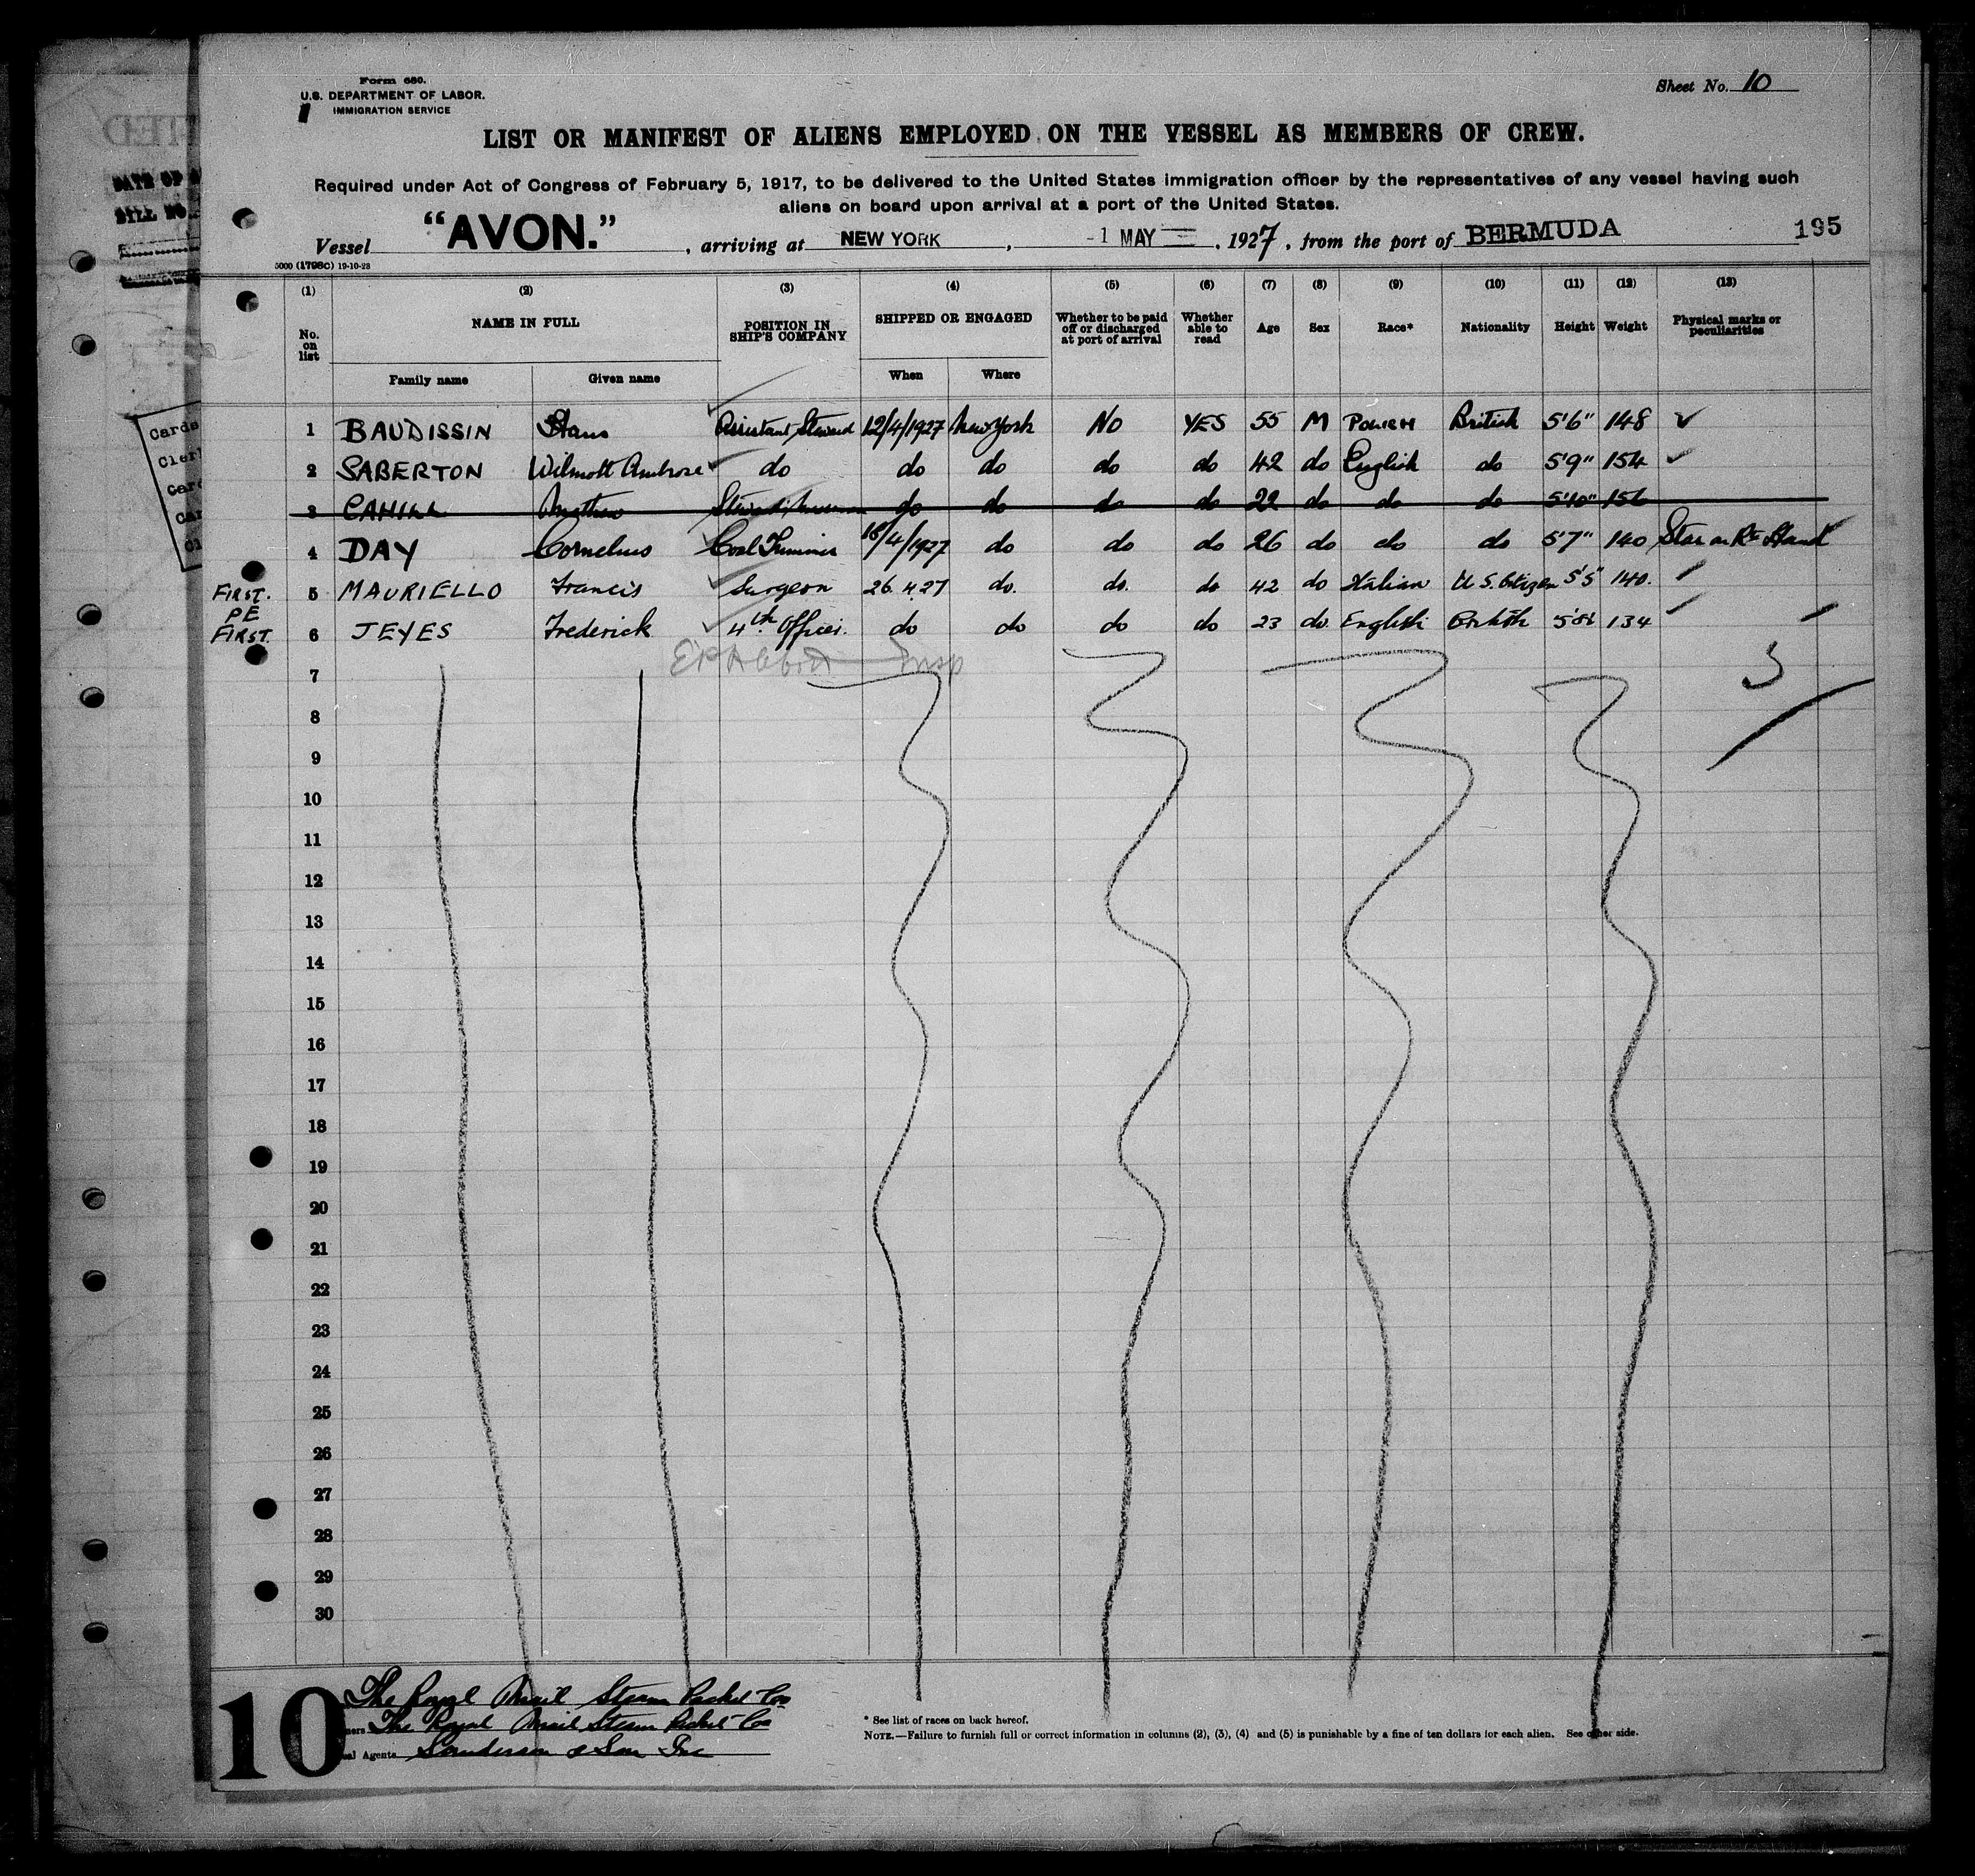 Form 680.
U.S. DEPARTMENT OF LABOR.
IMMIGRATION SERVICE
Sheet No. 10
LIST OR MANIFEST OF ALIENS EMPLOYED ON THE VESSEL AS MEMBERS OF CREW.
Required under Act of Congress of February 5, 1917, to be delivered to the United States immigration officer by the representatives of any vessel having such
aliens on board upon arrival at a port of the United States.
Vessel "AVON.", arriving at NEW YORK, -1 MAY, 1927, from the port of BERMUDA 195
5000 (1798C) 19-10-23
(1) (2) (3) (4) (5) (6) (7) (8) (9) (10) (11) (12) (13)
No. on list NAME IN FULL POSITION IN SHIP'S COMPANY SHIPPED OR ENGAGED Whether to be paid off or discharged at port of arrival Whether able to read Age Sex Race* Nationality Height Weight Physical marks or peculiarities
Family name Given name When Where
1 BAUDISSIN Hans Assistant Steward 12/4/1927 New York No YES 55 M POLISH British 5'6" 148
2 SABERTON Wilmott Ambrose do do do do do 42 do English do 5'9" 154
3 CAHILL Mathew do do do do 22 do do do 5'10"
4 DAY Cornelius Coal Trimmer 18/4/1927 do do do 26 do do do 5'7" 140 Star on Rt Hand
FIRST. 5 MAURIELLO Francis Surgeon 26.4.27 do. do. do 42 do Italian U.S. Citizen 5'5" 140.
PE
FIRST. 6 JEYES Frederick 4th Officer. do do do do 23 do. English British 134
Insp
7
8
9
10
11
12
13
14
15
16
17
18
19
20
21
22
23
24
25
26
27
28
29
30
10
The Royal Mail Steam Packet Co
The Royal Mail Steam Packet Co
Agents Sanderson & Son Inc
* See list of races on back hereof.
NOTE.—Failure to furnish full or correct information in columns (2), (3), (4) and (5) is punishable by a fine of ten dollars for each alien. See other side.